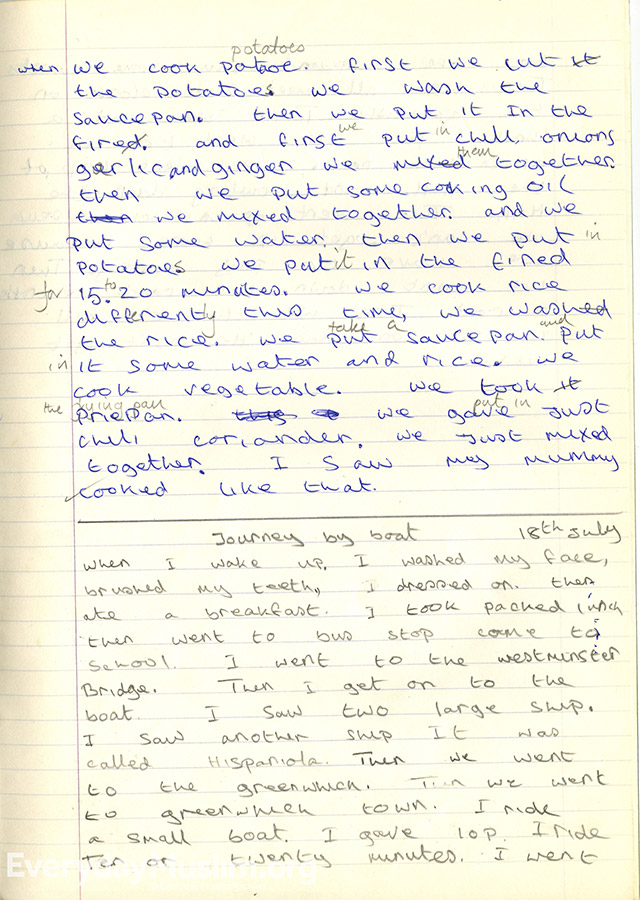 potatoes
when we cook potatoe. first we cut it
the potatoes we wash the
saucepan. then we put it In the
we in
fired. and first put chili, onions
them
garlic and ginger we mixed together.
then we put some cooking oil
then we mixed together. and we
put some water. then we put in
potatoes we put it in the fired
to
for 15.20 minutes. we cook rice
differently this time, we washed
take a and
the rice. we put saucepan. put
in it some water and rice. we
cook vegetable. we took it
the frying pan put in
priepan. we gave just
chili coriander. we just mixed
together. I saw my mummy
cooked like that.
Journey by boat 18th July
when I wake up, I washed my face,
brushed my teeth, I dressed on. then
ate a breakfast. I took packed lunch
then went to bus stop come to
school. I went to the westminster
Bridge. Then I get on to the
boat. I saw two large ship.
I saw another ship It was
called Hispaniola. Then we went
to the greenwhich. Then we went
to greenwhich town. I ride
a small boat. I gave 10p. I ride
Ten or twenty minutes. I went
EverydayMuslim.org